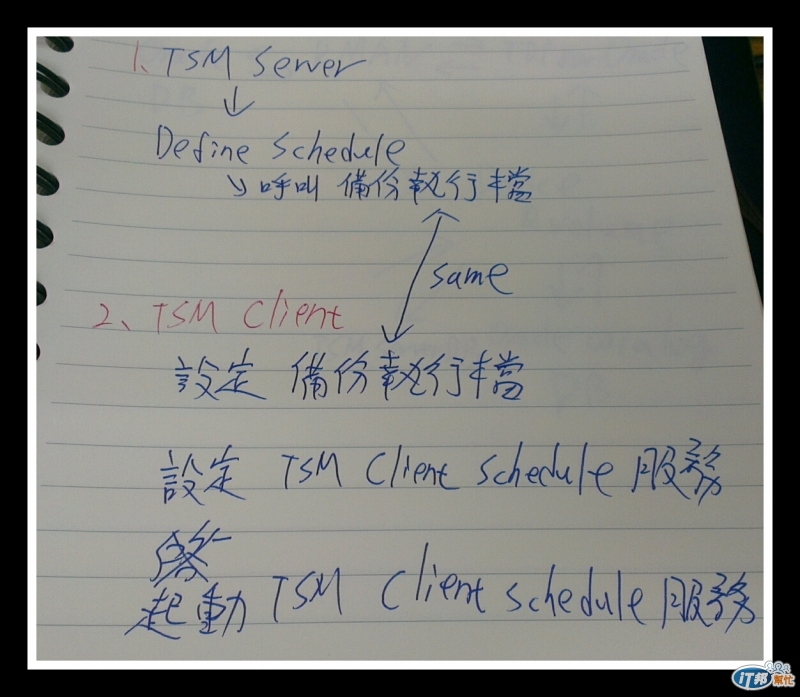 1、TSM Server
↓
Define Schedule
↘呼叫 備份執行檔
same
2、TSM Client
設定 備份執行檔
設定 TSM Client schedule 服務
起動 TSM Client schedule 服務
iT邦幫忙